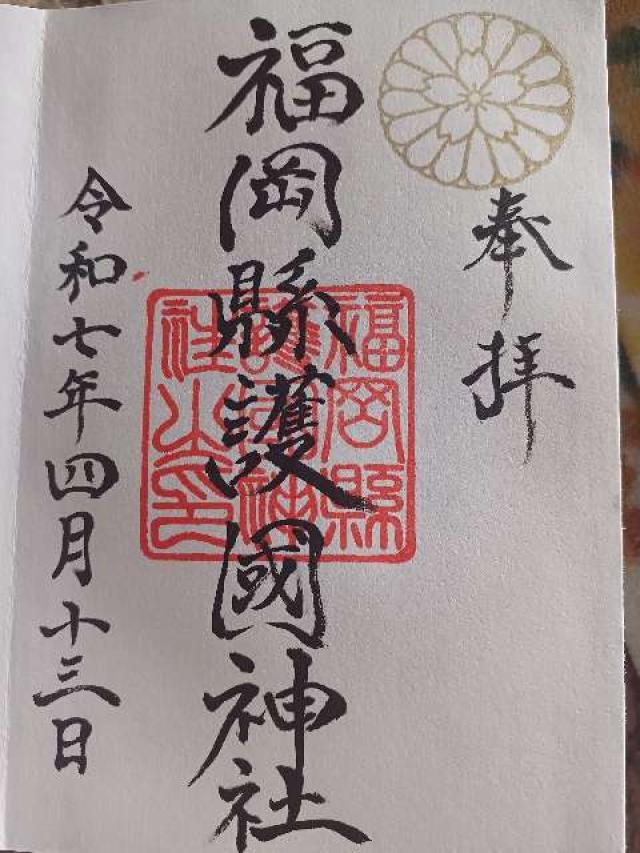 奉拝
福岡縣護國神社
福岡縣
護國神
社之印
令和七年四月十三日